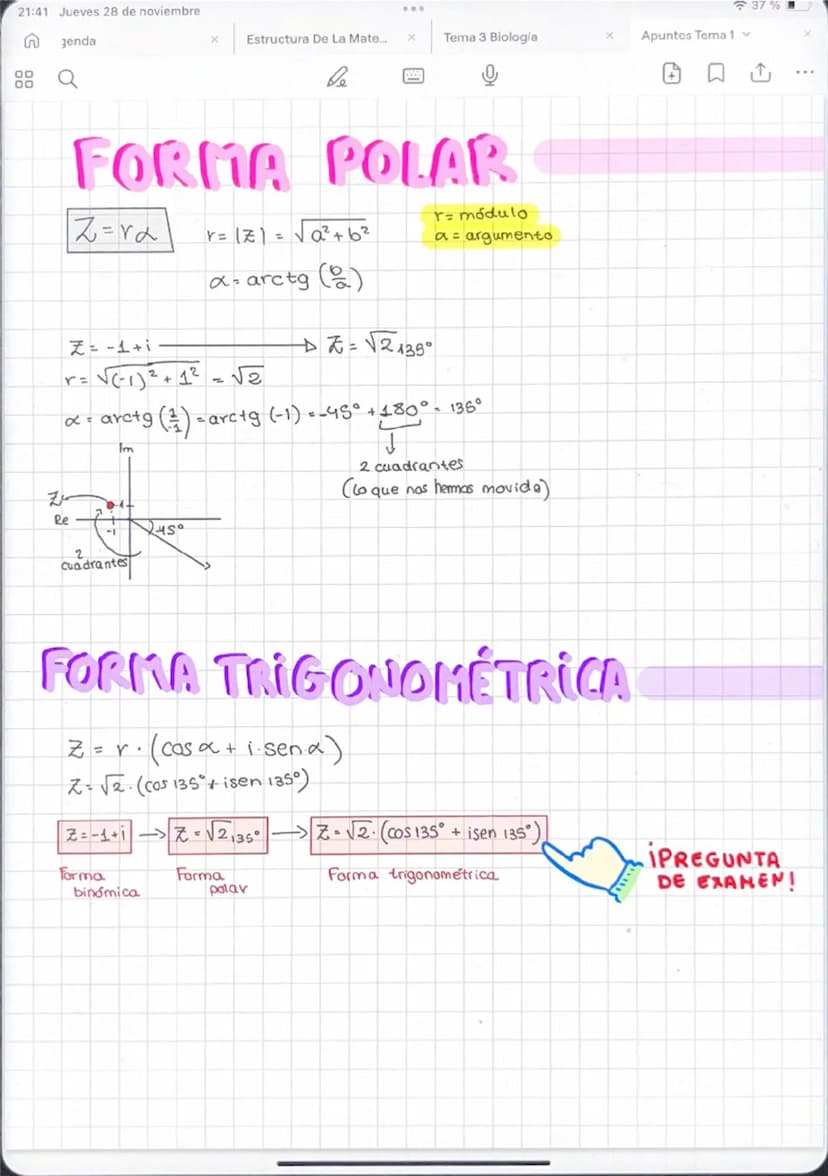 21:41 Jueves 28 de noviembre
37 %
genda
Estructura De La Mate...
Tema 3 Biología
Apuntes Tema 1
FORMA POLAR
Z = rα
r = |z| = √a² + b²
r = módulo
α = argumento
α = arctg (b/a)
Z = -1 + i → Z = √2 135°
r = √(-1)² + 1² = √2
α = arctg (1/-1) = arctg (-1) = -45° + 180° = 136°
2 cuadrantes
(lo que nos hemos movido)
Im
Z
1
Re
-1
45°
2
cuadrantes
FORMA TRIGONOMÉTRICA
Z = r · (cos α + i · sen α)
Z = √2 · (cos 135° + i sen 135°)
Z = -1 + i → Z = √2 135° → Z = √2 · (cos 135° + i sen 135°)
Forma binómica
Forma polar
Forma trigonométrica
¡PREGUNTA
DE EXAMEN!